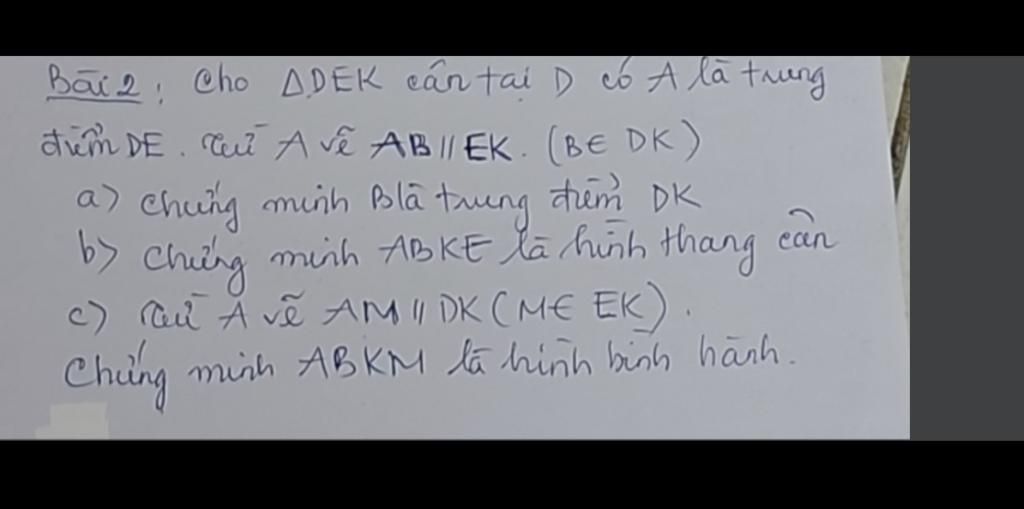 Bài 2: Cho ΔDEK cân tại D có A là trung
điểm DE. Từ A vẽ AB // EK. (B∈ DK)
a) Chứng minh B là trung điểm DK
b) Chứng minh ABKE là hình thang cân
c) Từ A vẽ AM // DK (M∈ EK).
Chứng minh ABKM là hình bình hành.